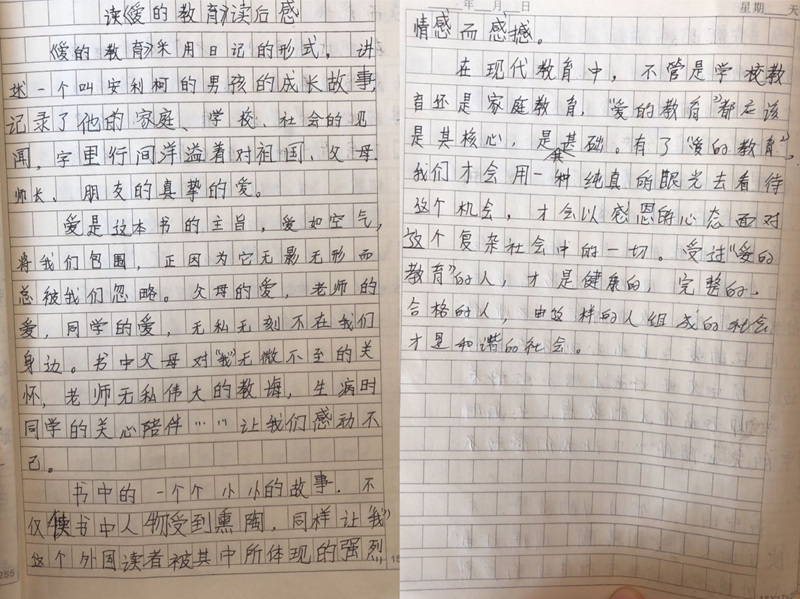 读《爱的教育》读后感
《爱的教育》采用日记的形式，讲
述一个叫安利柯的男孩的成长故事，
记录了他的家庭、学校、社会的见
闻，字里行间洋溢着对祖国、父母、
师长、朋友的真挚的爱。
爱是这本书的主旨，爱如空气，
将我们包围，正因为它无影无形而
总被我们忽略。父母的爱，老师的
爱，同学的爱，无私无刻不在我们
身边。书中父母对“我”无微不至的关
怀，老师无私伟大的教诲，生病时
同学的关心陪伴……让我们感动不
已。
书中的一个个小小的故事，不
仅使书中人物受到熏陶，同样让“我”
这个外国读者被其中所体现的强烈
285
年 月 日
星期 天
情感而感撼。
在现代教育中，不管是学校教
育还是家庭教育，“爱的教育”都应该
是其核心，是其基础。有了“爱的教育”，
我们才会用一种纯真的眼光去看待
这个机会，才会以感恩的心态面对
这个复杂社会中的一切。受过“爱的
教育”的人，才是健康的，完整的，
合格的人，由这样的人组成的社会
才是和谐的社会。